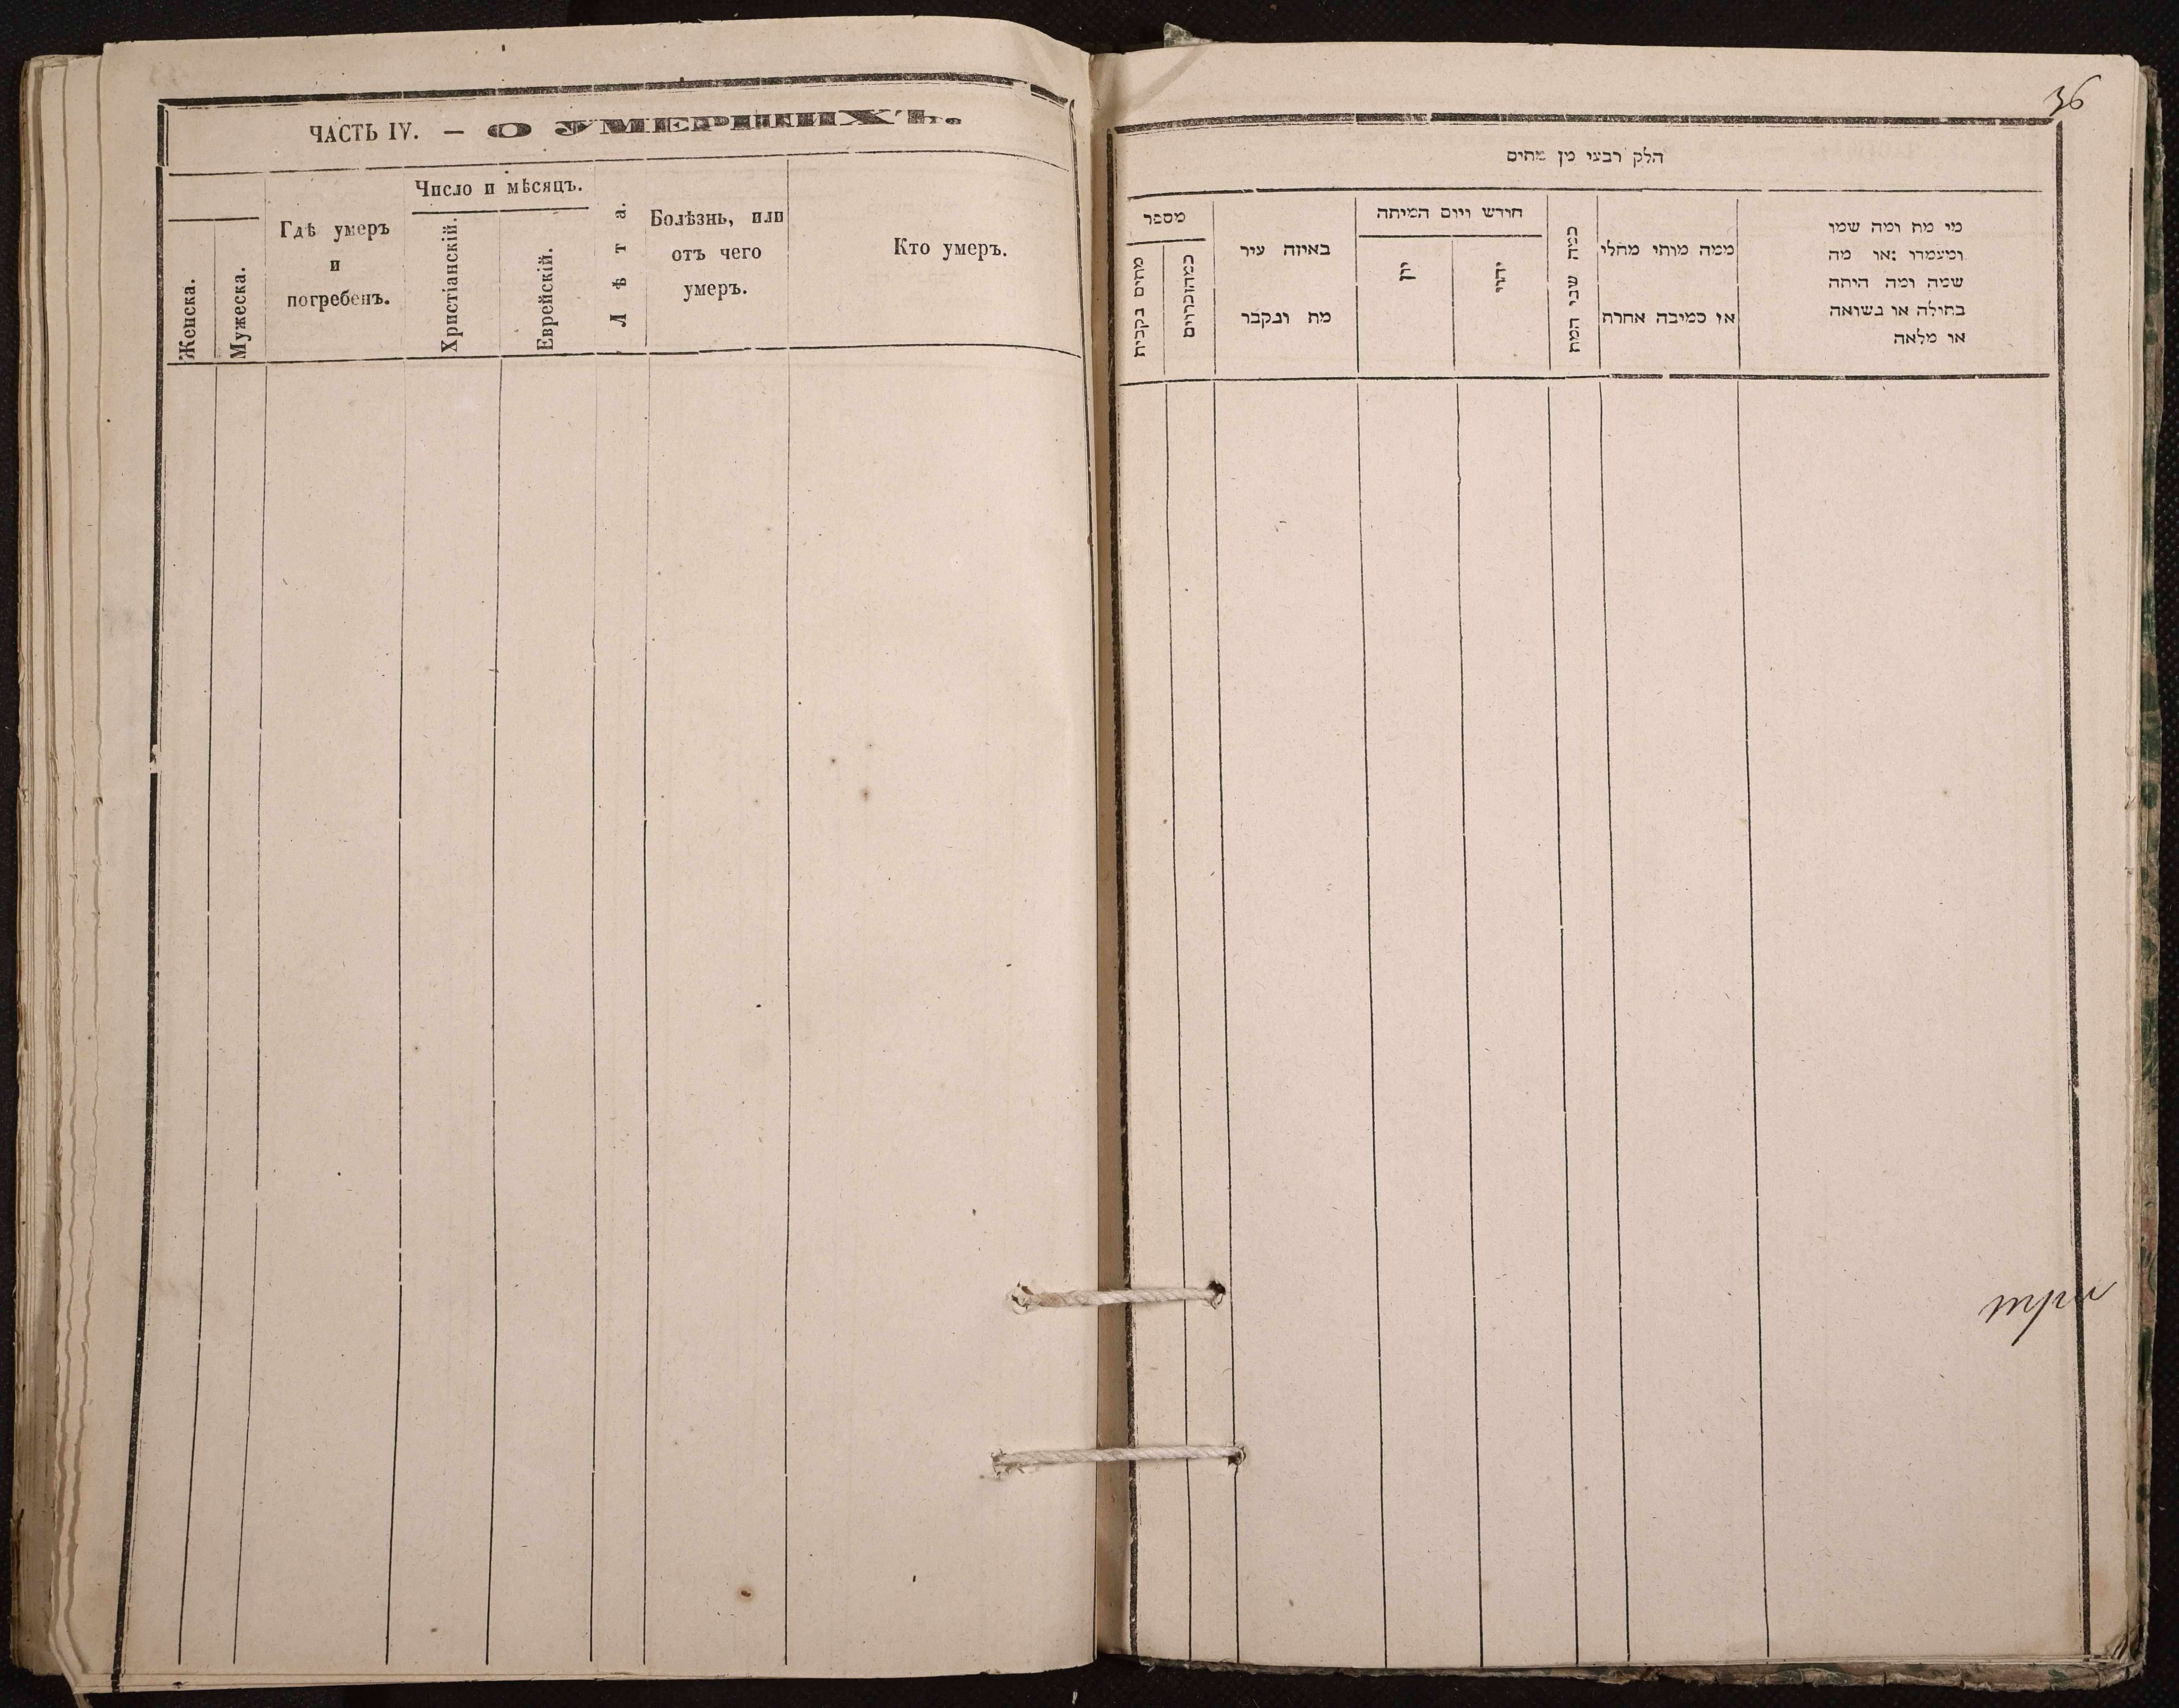 ЧАСТЬ IV. — О УМЕРШИХЪ.
Женска.
Мужеска.
Гдѣ умеръ
и
погребенъ.
Число и мѣсяцъ.
Христіанскій.
Еврейскій.
Лѣта.
Болѣзнь, или
отъ чего
умеръ.
Кто умеръ.
36
הלק רבעי מן מתים
מספר
באיזה עיר
מת ונקבר
חודש ויום המיתה
יון
יהודי
כמה שני המת
ממה מותי מחלי
או סמיבה אחרת
מי מת ומה שמו
ומעמדו :או מה
שמה ומה היתה
בתולה או נשואה
או מלאה
три